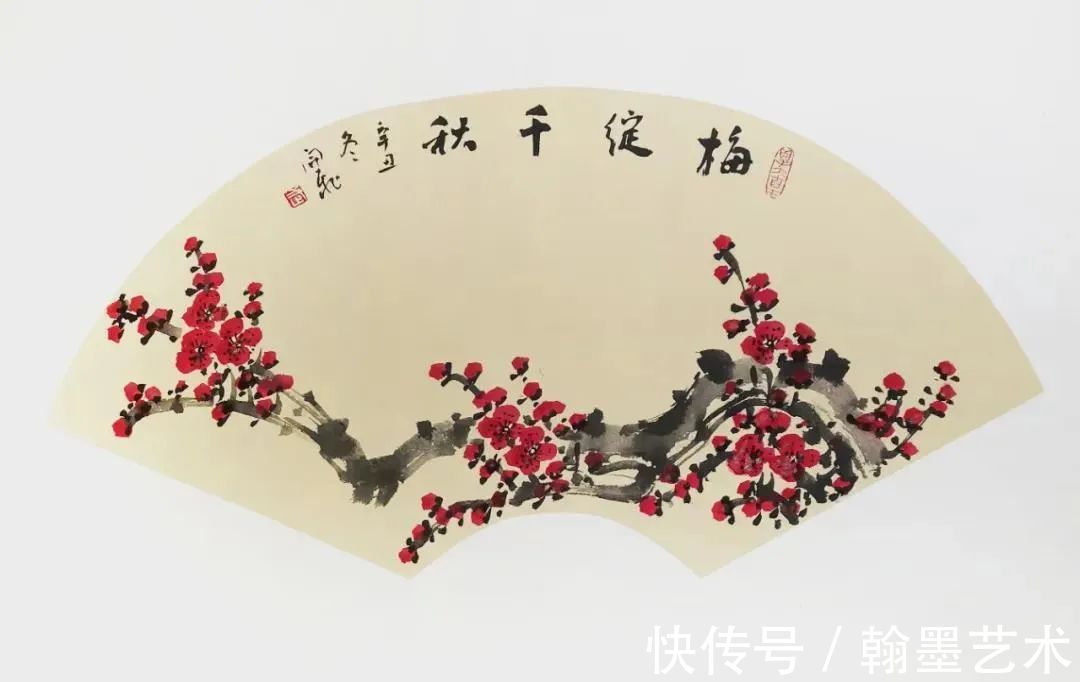 梅绽千秋
辛丑
冬
快传号 / 翰墨艺术